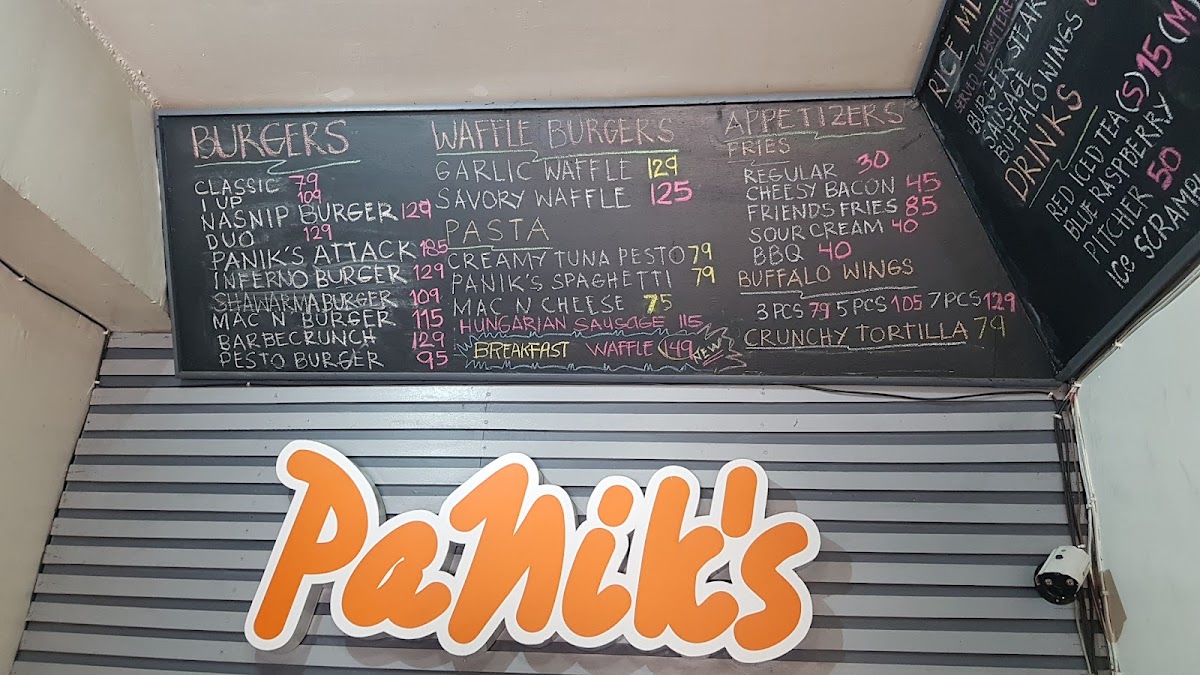 BURGERS
CLASSIC 79
1 UP 109
NASNIP BURGER 129
DUO 129
PANIK'S ATTACK 185
INFERNO BURGER 129
SHAWARMA BURGER 109
MAC N' BURGER 115
BARBECRUNCH 129
PESTO BURGER 95
WAFFLE BURGERS
GARLIC WAFFLE 129
SAVORY WAFFLE 125
PASTA
CREAMY TUNA PESTO 79
PANIK'S SPAGHETTI 79
MAC N CHEESE 75
HUNGARIAN SAUSAGE 115
BREAKFAST WAFFLE 149 NEW
APPETIZERS
FRIES
REGULAR 30
CHEESY BACON 45
FRIENDS FRIES 85
SOUR CREAM 40
BBQ 40
BUFFALO WINGS
3 PCS 79 5 PCS 105 7 PCS 129
CRUNCHY TORTILLA 79
RICE
SERVED W/
BURGER STEAK
SAUSAGE
BUFFALO WINGS
DRINKS
RED ICED TEA (S) 15 (M
BLUE RASPBERRY
PITCHER 50
ICE
Panik's